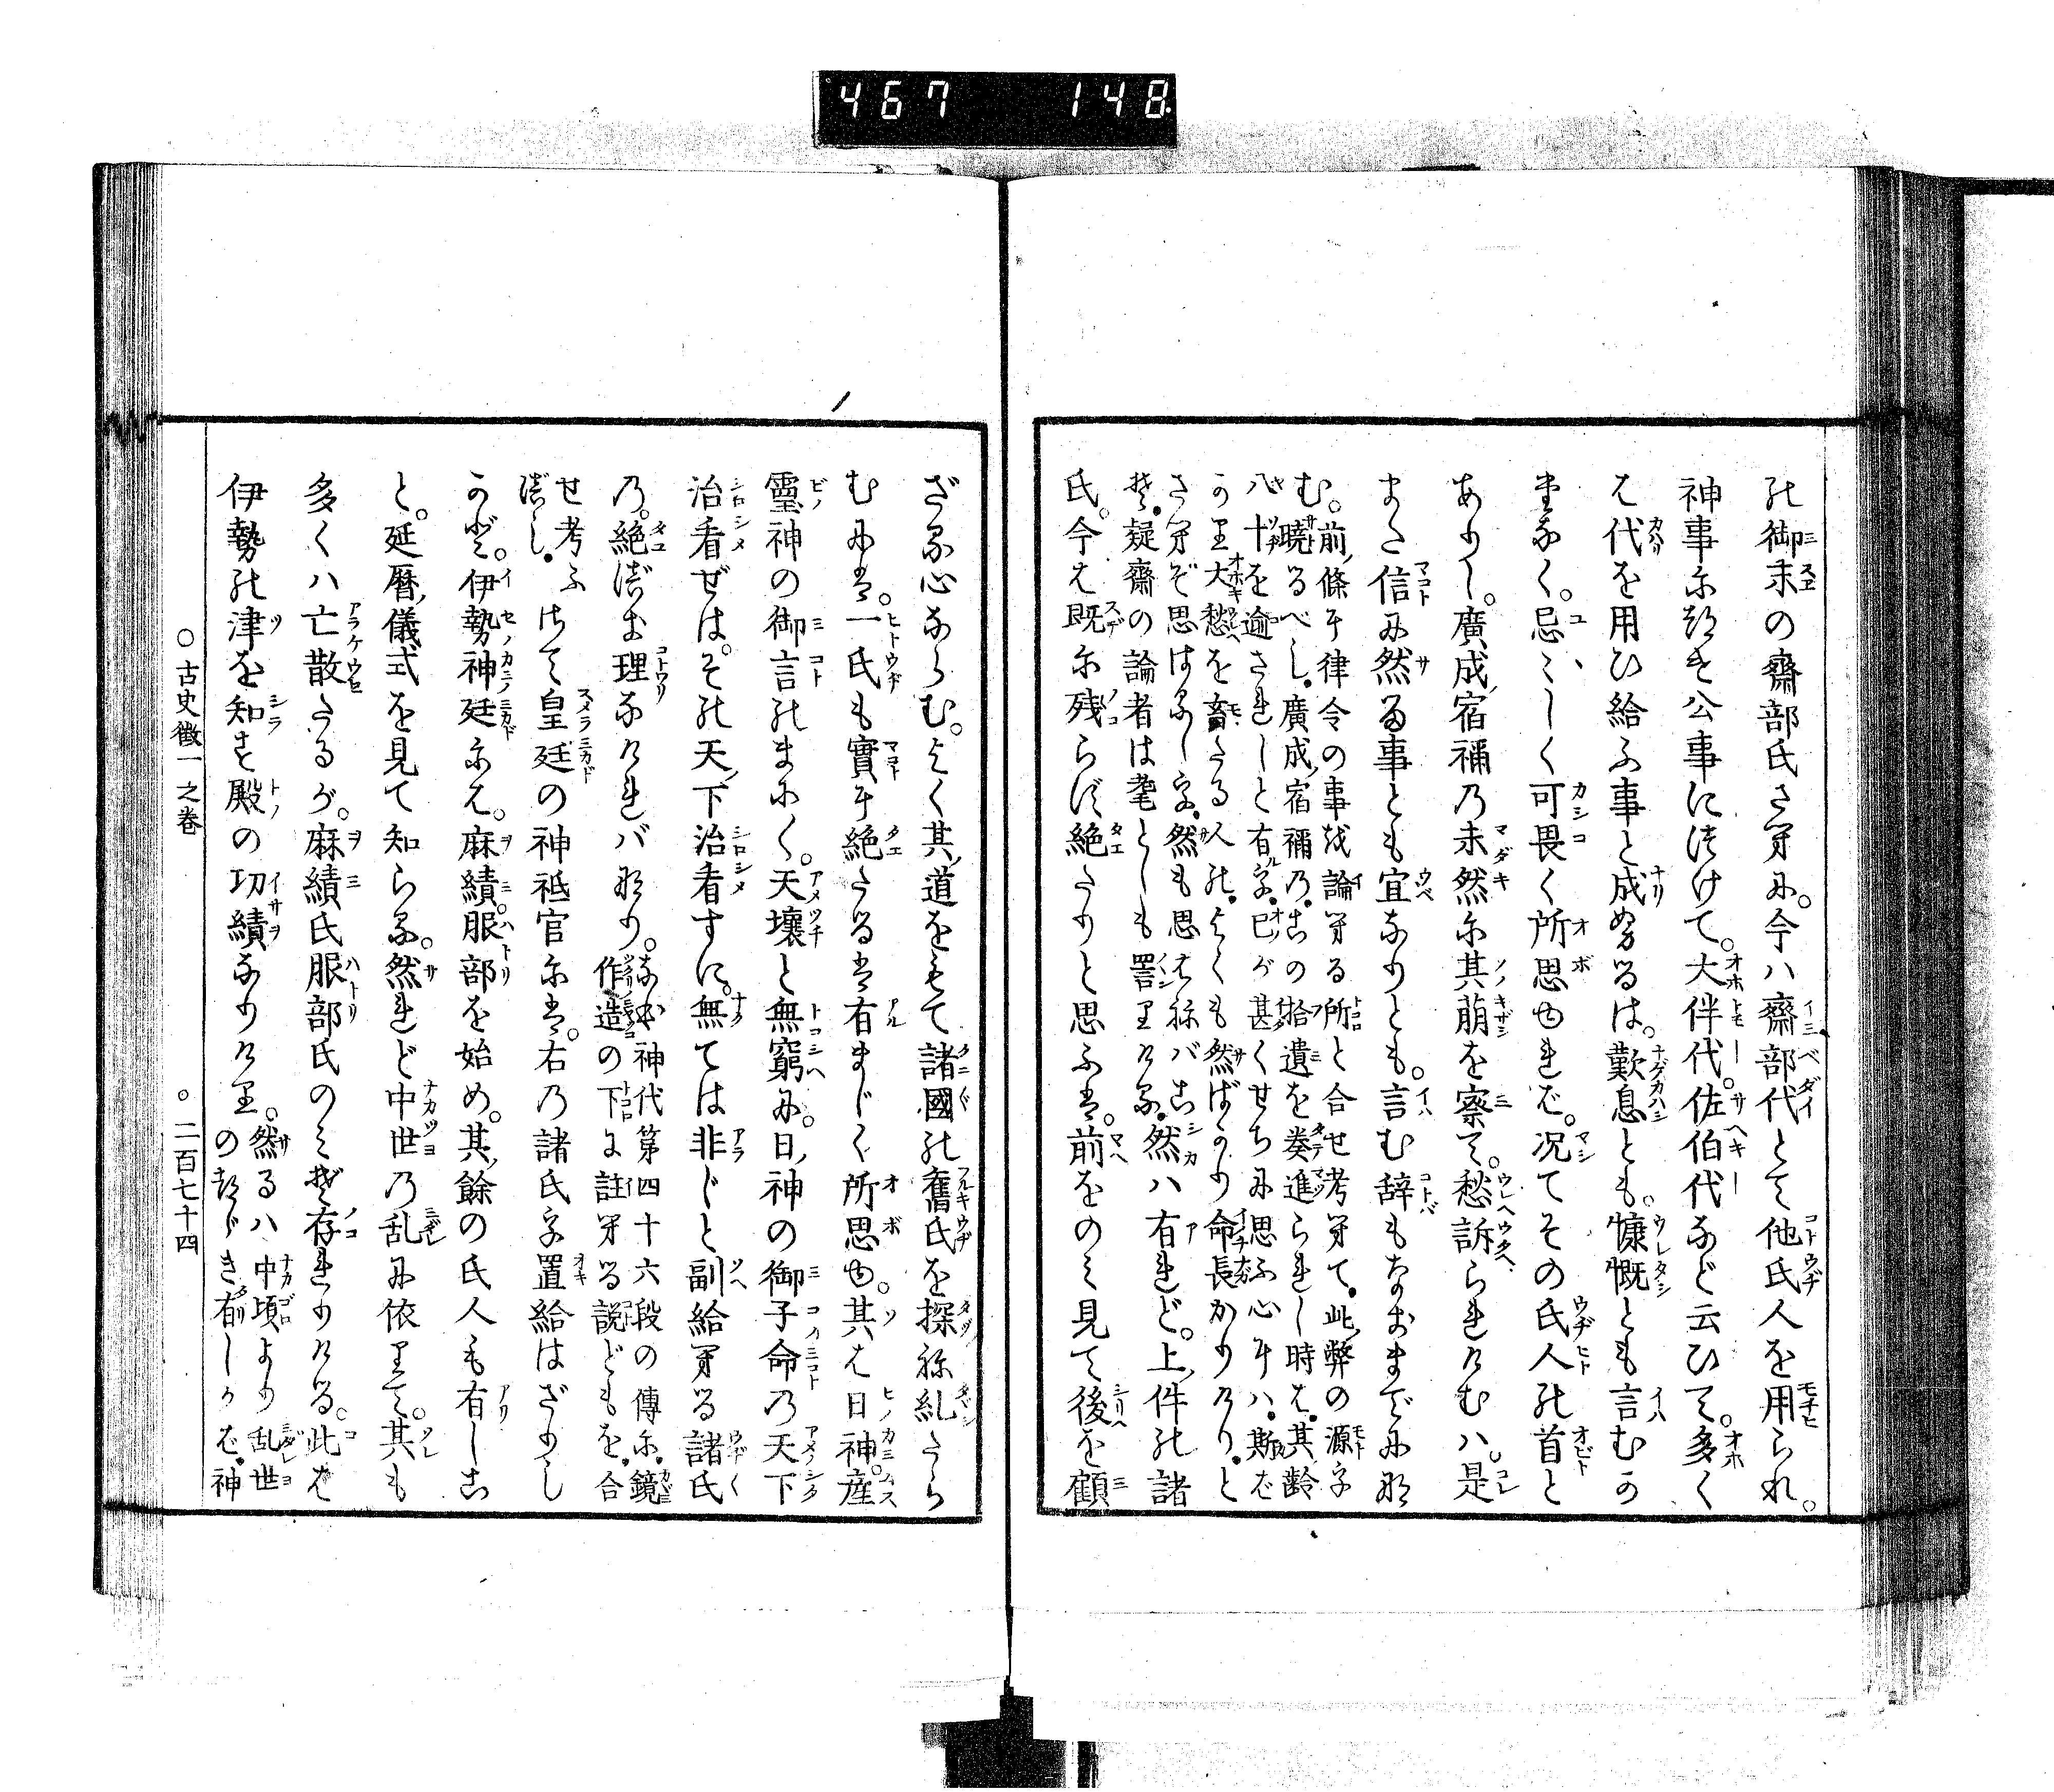 467 148
の御末の齋部氏さへに。今ハ齋部代とて他氏人を用られ。
神事に預る公事につけて。大伴代。佐伯代など云ひて。多く
は代を用ひ給ふ事と成ぬるは。歎息とも。慷慨とも言むか
たなく。忌ゝしく可畏く所思ゆれば。況てその氏人の首と
ありし。廣成宿禰乃未然に其萠を察て。愁訴られけむハ。是
また信に然る事とも宜なりとも。言む辞もなおまでにな
む。前條に律令の事を論へる所と合せ考へて。此弊の源を
曉るべし。廣成宿禰乃。この拾遺を奏進られし時は。其齡
八十を逾されしと有を。己が甚くせちに思ふ心にハ。斯ば
かり大愁を畜たる人の。よくも然ばかり命長かりけり。と
さへぞ思はるゝを。然も思はねバこそ疑齋の論者は耄としも詈りけれ。然ハ有れど。上件の諸
氏。今は既に残らず絶たりと思ふは。前をのみ見て後を顧
ざる心ならむ。よく其道をもて諸國の舊氏を探ね糺たら
むには。一氏も實に絶たるは有まじく所思ゆ。其は日神。産
靈神の御言のまにく。天壤と無窮に。日神の御子命乃天下
治看ぜは。その天下治看すに。無ては非じと副給へる諸氏
乃。絶づま理なければなり。なほ神代第四十六段の傳に。鏡
作造の下に註へる説どもを。合
せ考ふべし。さて皇廷の神祇官には。右乃諸氏を置給はざりし
かど。伊勢神廷には。麻績。服部を始め。其餘の氏人も有しこ
と。延暦儀式を見て知らる。然れど中世乃乱に依りて。其も
多くハ亡散たるが。麻績氏服部氏のみぞ存れりける。此は
伊勢の津を知す殿の功績なりけり。然るハ中頃より乱世
の頻き有しかば。神
○古史徴一之巻 ○二百七十四